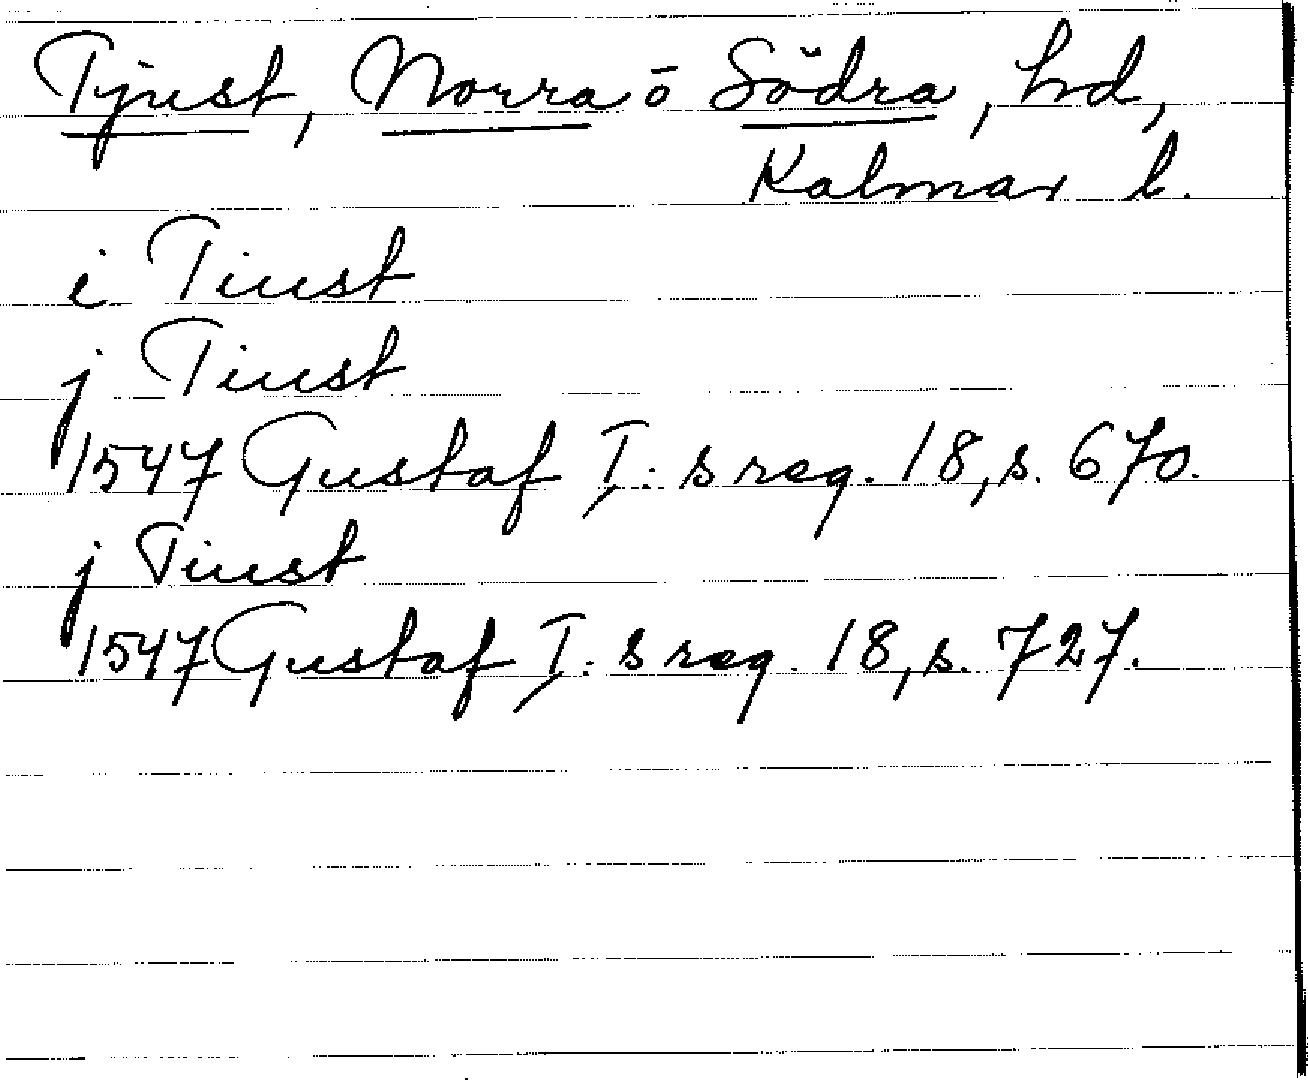 Tjust, Norra o Södra, hd,
Kalmar l.
i Tiust
j Tiust
1547 Gustaf I:s reg. 18, s. 670.
j Tiust
1547 Gustaf I:s reg. 18, s. 727.